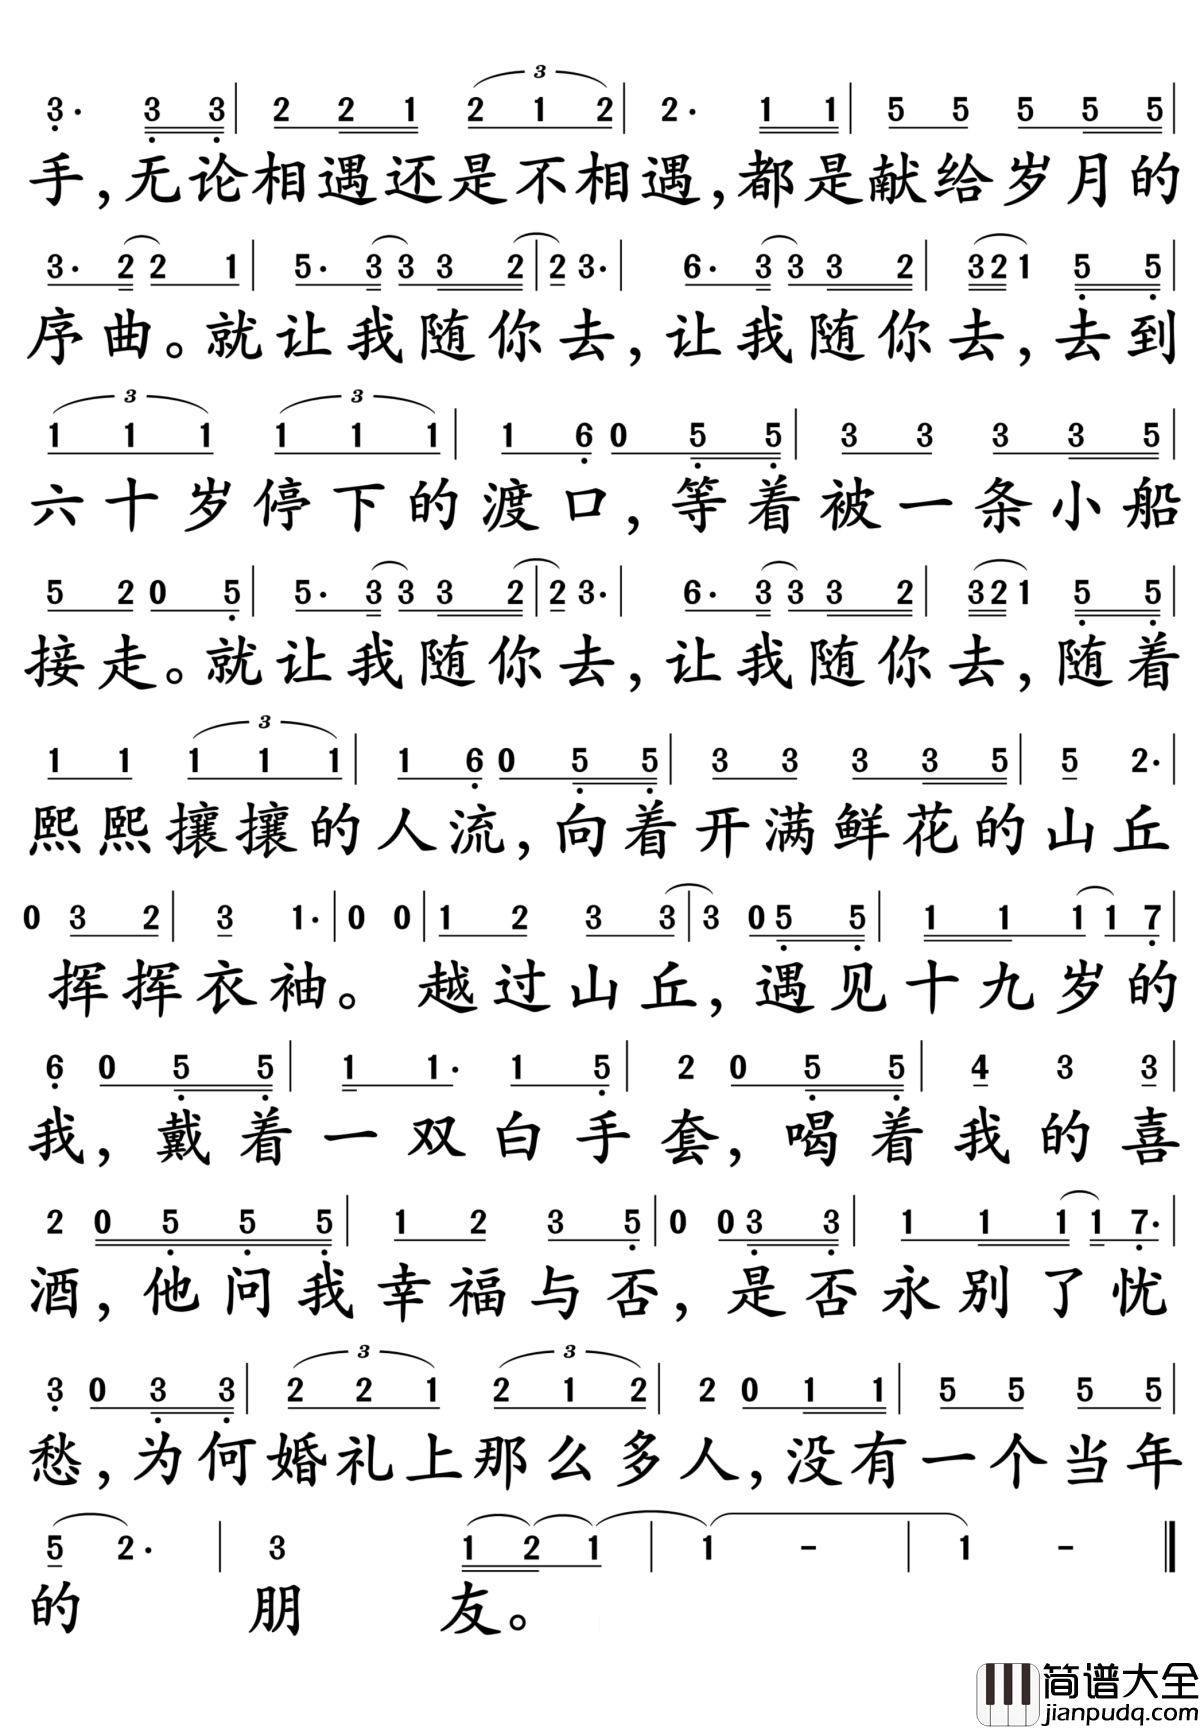 3
3· 3 3 | 2 2 1 2 1 2 | 2· 1 1 | 5 5 5 5 5 |
手,无论相遇还是不相遇,都是献给岁月的
3· 2 2 1 | 5· 3 3 3 2 | 2 3· | 6· 3 3 3 2 | 3 2 1 5 5 |
序曲。就让我随你去,让我随你去,去到
3 3
1 1 1 1 1 1 | 1 6 0 5 5 | 3 3 3 3 5 |
六十岁停下的渡口,等着被一条小船
5 2 0 5 | 5· 3 3 3 2 | 2 3· | 6· 3 3 3 2 | 3 2 1 5 5 |
接走。就让我随你去,让我随你去,随着
3
1 1 1 1 1 | 1 6 0 5 5 | 3 3 3 3 5 | 5 2· |
熙熙攘攘的人流,向着开满鲜花的山丘
0 3 2 | 3 1· | 0 0 | 1 2 3 3 | 3 0 5 5 | 1 1 1 1 7 |
挥挥衣袖。越过山丘,遇见十九岁的
6 0 5 5 | 1 1· 1 5 | 2 0 5 5 | 4 3 3 |
我,戴着一双白手套,喝着我的喜
2 0 5 5 5 | 1 2 3 5 | 0 0 3 3 | 1 1 1 1 7· |
酒,他问我幸福与否,是否永别了忧
3 3
3 0 3 3 | 2 2 1 2 1 2 | 2 0 1 1 | 5 5 5 5 |
愁,为何婚礼上那么多人,没有一个当年
5 2· | 3 1 2 1 | 1 - | 1 - ‖
的朋友。
简谱大全
jianpudq.com